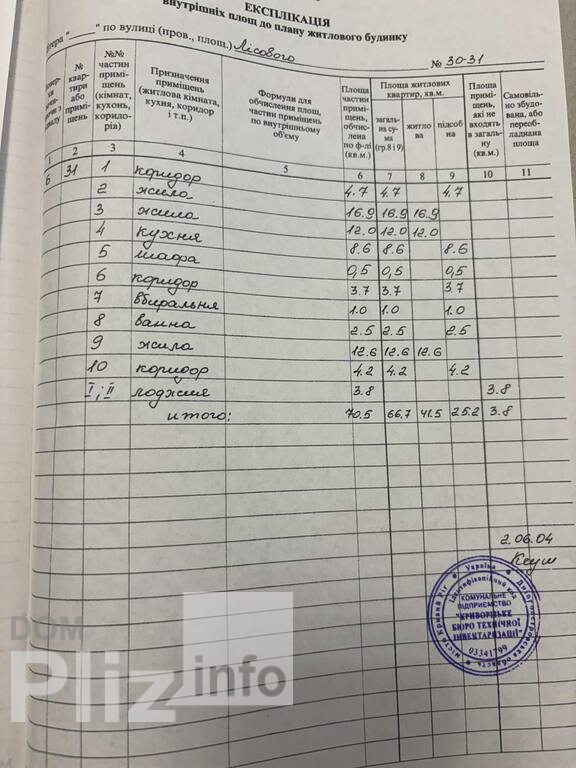 ЕКСПЛІКАЦІЯ
внутрішніх площ до плану житлового будинку
ітера "____" по вулиці (пров., площ.) Лісового № 30-31
№ квар- тири або примі- щень
№№ частин примі- щень (кімнат, кухонь, коридо- рів)
Призначення приміщень (житлова кімната, кухня, коридор і т.п.)
Формули для обчислення площ, частин приміщень по внутрішньому об'єму
Площа частин примі- щень, обчис- лена по ф-лі (кв.м.)
Площа житлових квартир, кв.м.
загаль- на су- ма (гр.8 і 9)
житло ва
підсоб на
Площа примі- щень, які не входять в загаль- ну (кв.м.)
Самовіль- но збудо- вана, або переоб- ладнана площа
1 2 3 4 5 6 7 8 9 10 11
6 31 1 коридор 4.7 4.7 4.7
2 жила 16.9 16.9 16.9
3 жила 12.0 12.0 12.0
4 кухня 8.6 8.6 8.6
5 шафа 0,5 0,5 0,5
6 коридор 3.7 3.7 3.7
7 вбиральня 1.0 1.0 1.0
8 ванна 2.5 2.5 2.5
9 жила 12.6 12.6 12.6
10 коридор 4.2 4.2 4.2
I, II лоджия 3.8 3.8
итого: 70.5 66.7 41.5 25.2 3.8
2.06.04
Україна * Дніпропетровська область * місто Кривий Ріг
Ідентифікаційний код
КОМУНАЛЬНЕ
ПІДПРИЄМСТВО
"КРИВОРІЗЬКЕ
БЮРО ТЕХНІЧНОЇ
ІНВЕНТАРИЗАЦІЇ"
03341799
DOM
Pliz info